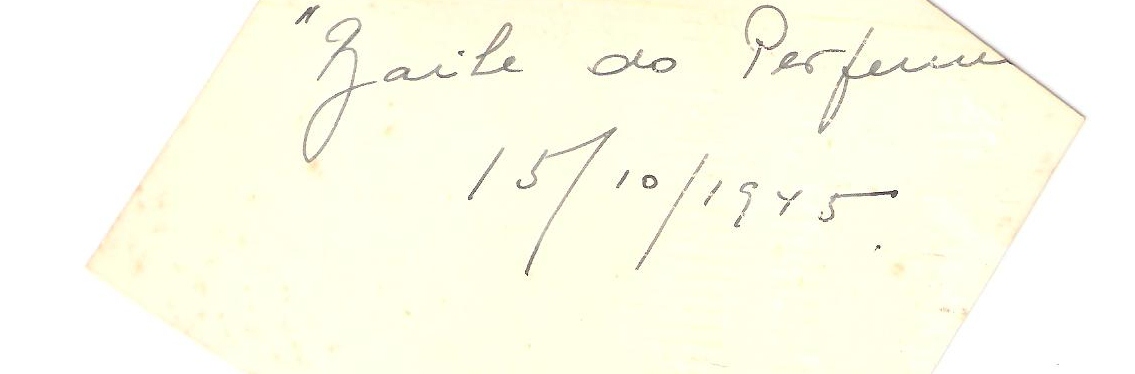 "Baile do Perfume
15/10/1945.